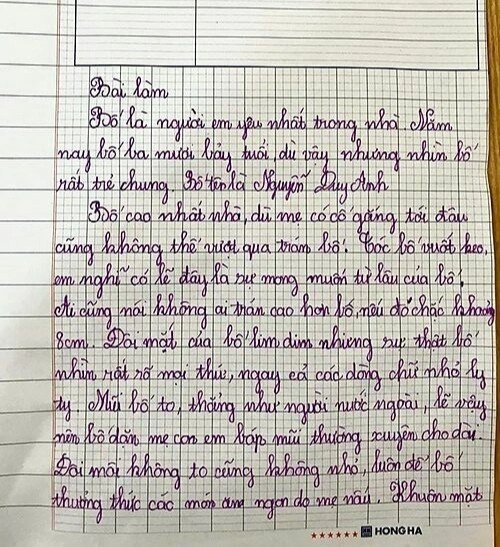 Bài làm
Bố là người em yêu nhất trong nhà. Năm
nay bố ba mươi bảy tuổi, dù vậy nhưng nhìn bố
rất trẻ chung. Bố tên là Nguyễn Duy Anh
Bố cao nhất nhà, dù mẹ có cố gắng tới đâu
cũng không thế vượt qua trán bố. Tóc bố vuốt keo,
em nghĩ có lẽ đây là sự mong muốn từ lâu của bố.
Ai cũng nói không ai trán cao hơn bố, nếu đo chắc khoảng
8cm. Đôi mắt của bố lim dim nhưng sự thật bố
nhìn rất rõ mọi thứ, ngay cả các dòng chữ nhỏ ly
ty. Mũi bố to, thẳng như người nước ngoài, lẽ vậy
nên bố dặn mẹ con em bóp mũi thường xuyên cho dài.
Đôi môi không to cũng không nhỏ, luôn để bố
thưởng thức các món ăn ngon do mẹ nấu. Khuôn mặt
HONG HA